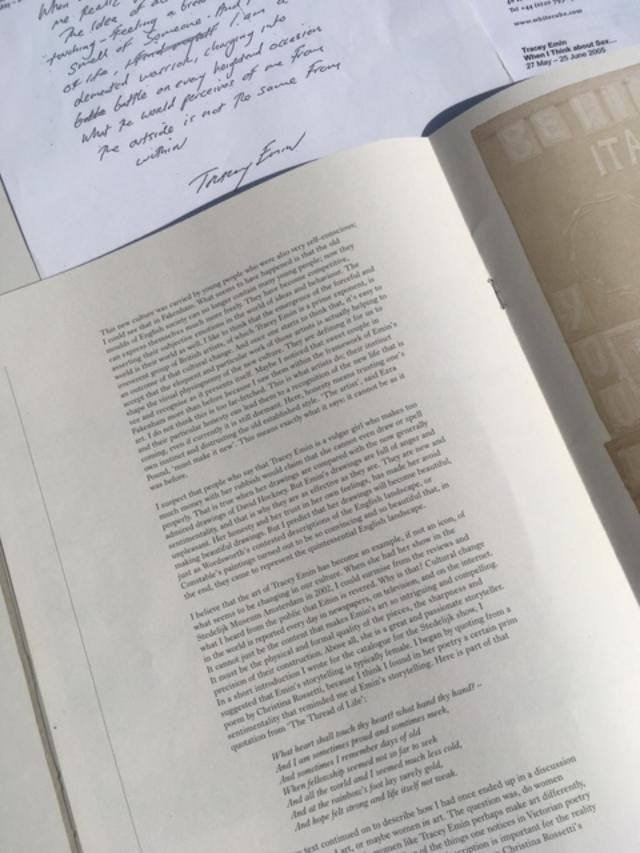 When
me realize
The Idea of
touching - feeling a
Smell of Someone. And
of life, I am a
demented warrior, charging into
battle on every heightened occasion
What the world perceives of me from
The outside is not The same From
within
Tracey Emin
www.whitecube.com
Tracey Emin
When I Think about Sex...
27 May – 25 June 2005
This new culture was carried by young people who were also very self-conscious;
I could see that in Fakenham. What seems to have happened is that the old
moulds of English society can no longer contain many young people; now they
can express themselves much more freely. They have become competitive,
asserting their subjective emotions in the world of ideas and behaviour. The
world is their world as well. I like to think that the emergence of the forceful and
irreverent group of British artists, of which Tracey Emin is a prime exponent, is
an outcome of that cultural change. And once one starts to think that, it's easy to
accept that the eloquent and particular work of those artists is actually helping to
shape the visual physiognomy of the new culture. They are defining it for us to
see and recognise as it presents itself. Maybe I noticed that sweet couple in
Fakenham more than before because I saw them within the framework of Emin's
art. I do not think this is too far-fetched. This is what artists do; their instinct
and their particular honesty can lead them to a recognition of the new life that is
coming, even if currently it is still dormant. Here, honesty means trusting one's
own instinct and distrusting the old established style. 'The artist', said Ezra
Pound, 'must make it new'. This means exactly what it says: it cannot be as it
was before.
I suspect that people who say that Tracey Emin is a vulgar girl who makes too
much money with her rubbish would claim that she cannot even draw or spell
properly. That is true when her drawings are compared with the now generally
admired drawings of David Hockney. But Emin's drawings are full of anger and
sentimentality, and that is why they are as effective as they are. They are new and
unpleasant. Her honesty and her trust in her own feelings, has made her avoid
making beautiful drawings. But I predict that her drawings will become beautiful,
just as Wordsworth's contested descriptions of the English landscape, or
Constable's paintings turned out to be so convincing and so beautiful that, in
the end, they came to represent the quintessential English landscape.
I believe that the art of Tracey Emin has become an example, if not an icon, of
what seems to be changing in our culture. When she had her show in the
Stedelijk Museum Amsterdam in 2002, I could surmise from the reviews and
what I heard from the public that Emin is revered. Why is that? Cultural change
in the world is reported every day in newspapers, on television, and on the internet.
It cannot just be the content that makes Emin's art so intriguing and compelling.
It must be the physical and formal quality of the pieces, the sharpness and
precision of their construction. Above all, she is a great and passionate storyteller.
In a short introduction I wrote for the catalogue for the Stedelijk show, I
suggested that Emin's storytelling is typically female. I began by quoting from a
poem by Christina Rossetti, because I think I found in her poetry a certain prim
sentimentality that reminded me of Emin's storytelling. Here is part of that
quotation from 'The Thread of Life':
What heart shall touch thy heart? what hand thy hand? –
And I am sometimes proud and sometimes meek,
And sometimes I remember days of old
When fellowship seemed not so far to seek
And all the world and I seemed much less cold,
And at the rainbow's foot lay surely gold,
And hope felt strong and life itself not weak.
text continued on to describe how I had once ended up in a discussion
art, or maybe women in art. The question was, do women
women like Tracey Emin perhaps make art differently,
of the things one notices in Victorian poetry
description is important for the reality
Christina Rossetti's